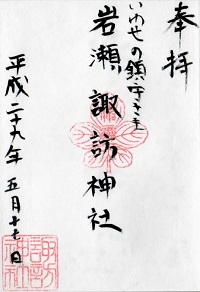 奉拝
いわせの鎮守さま
岩瀬諏訪神社
平成二十九年 五月十七日
諏訪神社